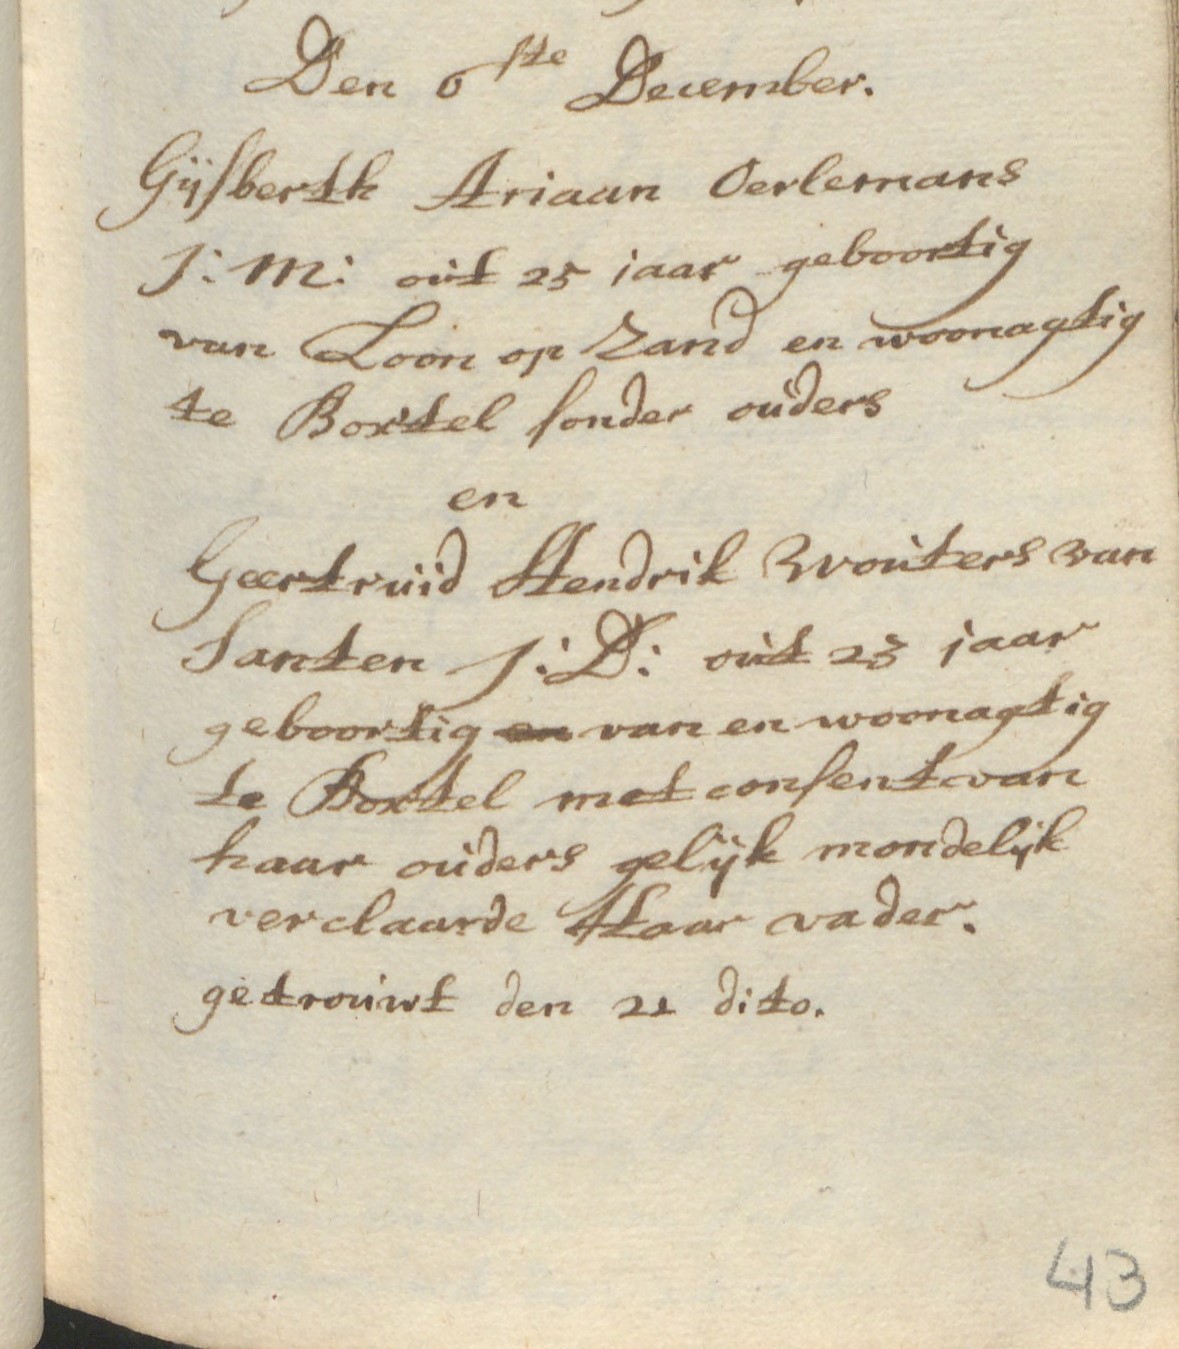 Den 6ste December.
Gijsberth Ariaan Oerlemans
J: M: out 25 jaar geboortig
van Loon op Zand en woonagtig
te Boxtel sonder ouders
en
Geertruid Hendrik Wouters van
Santen J: D: out 23 jaar
geboortig en van en woonagtig
te Boxtel met consent van
haar ouders gelijk mondelijk
verclaarde Haar vader.
getrouwt den 21 dito.
43